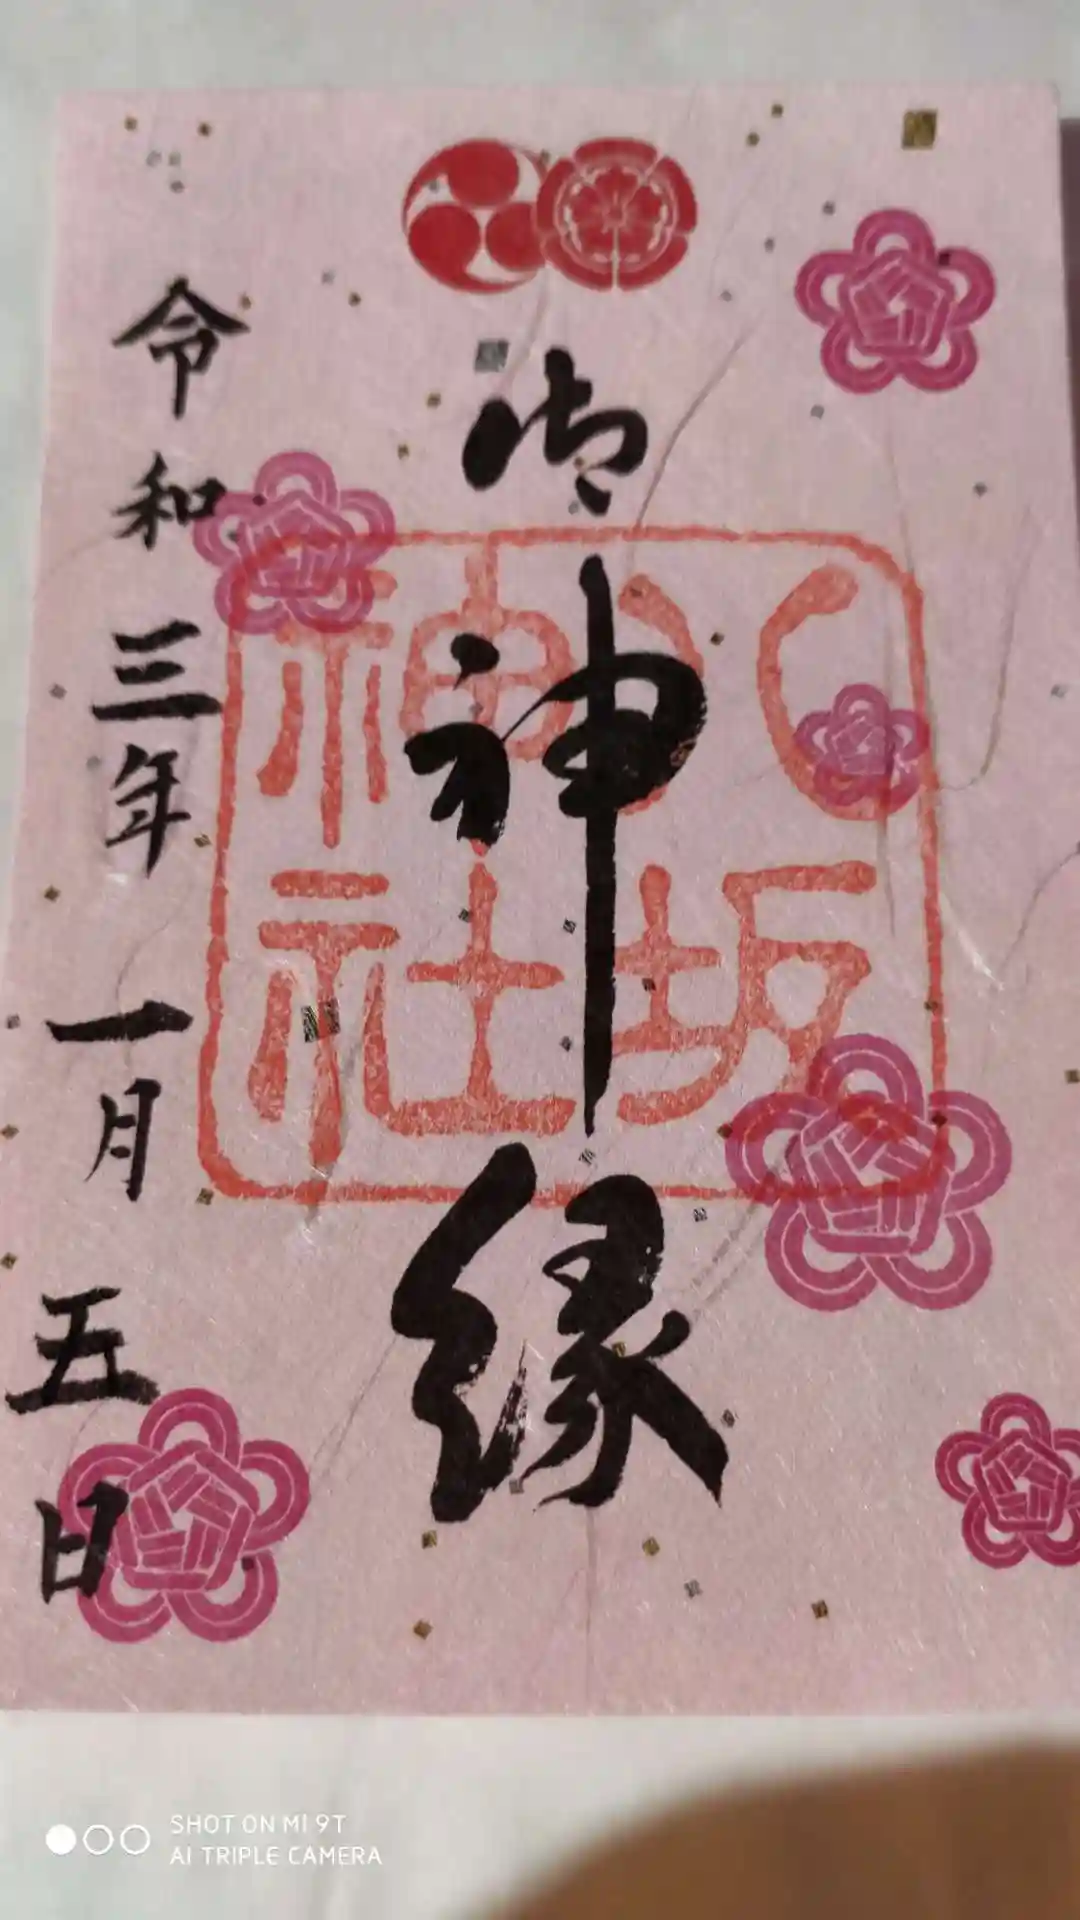 御神縁
八坂
神社
令和三年一月五日
SHOT ON MI 9T
AI TRIPLE CAMERA